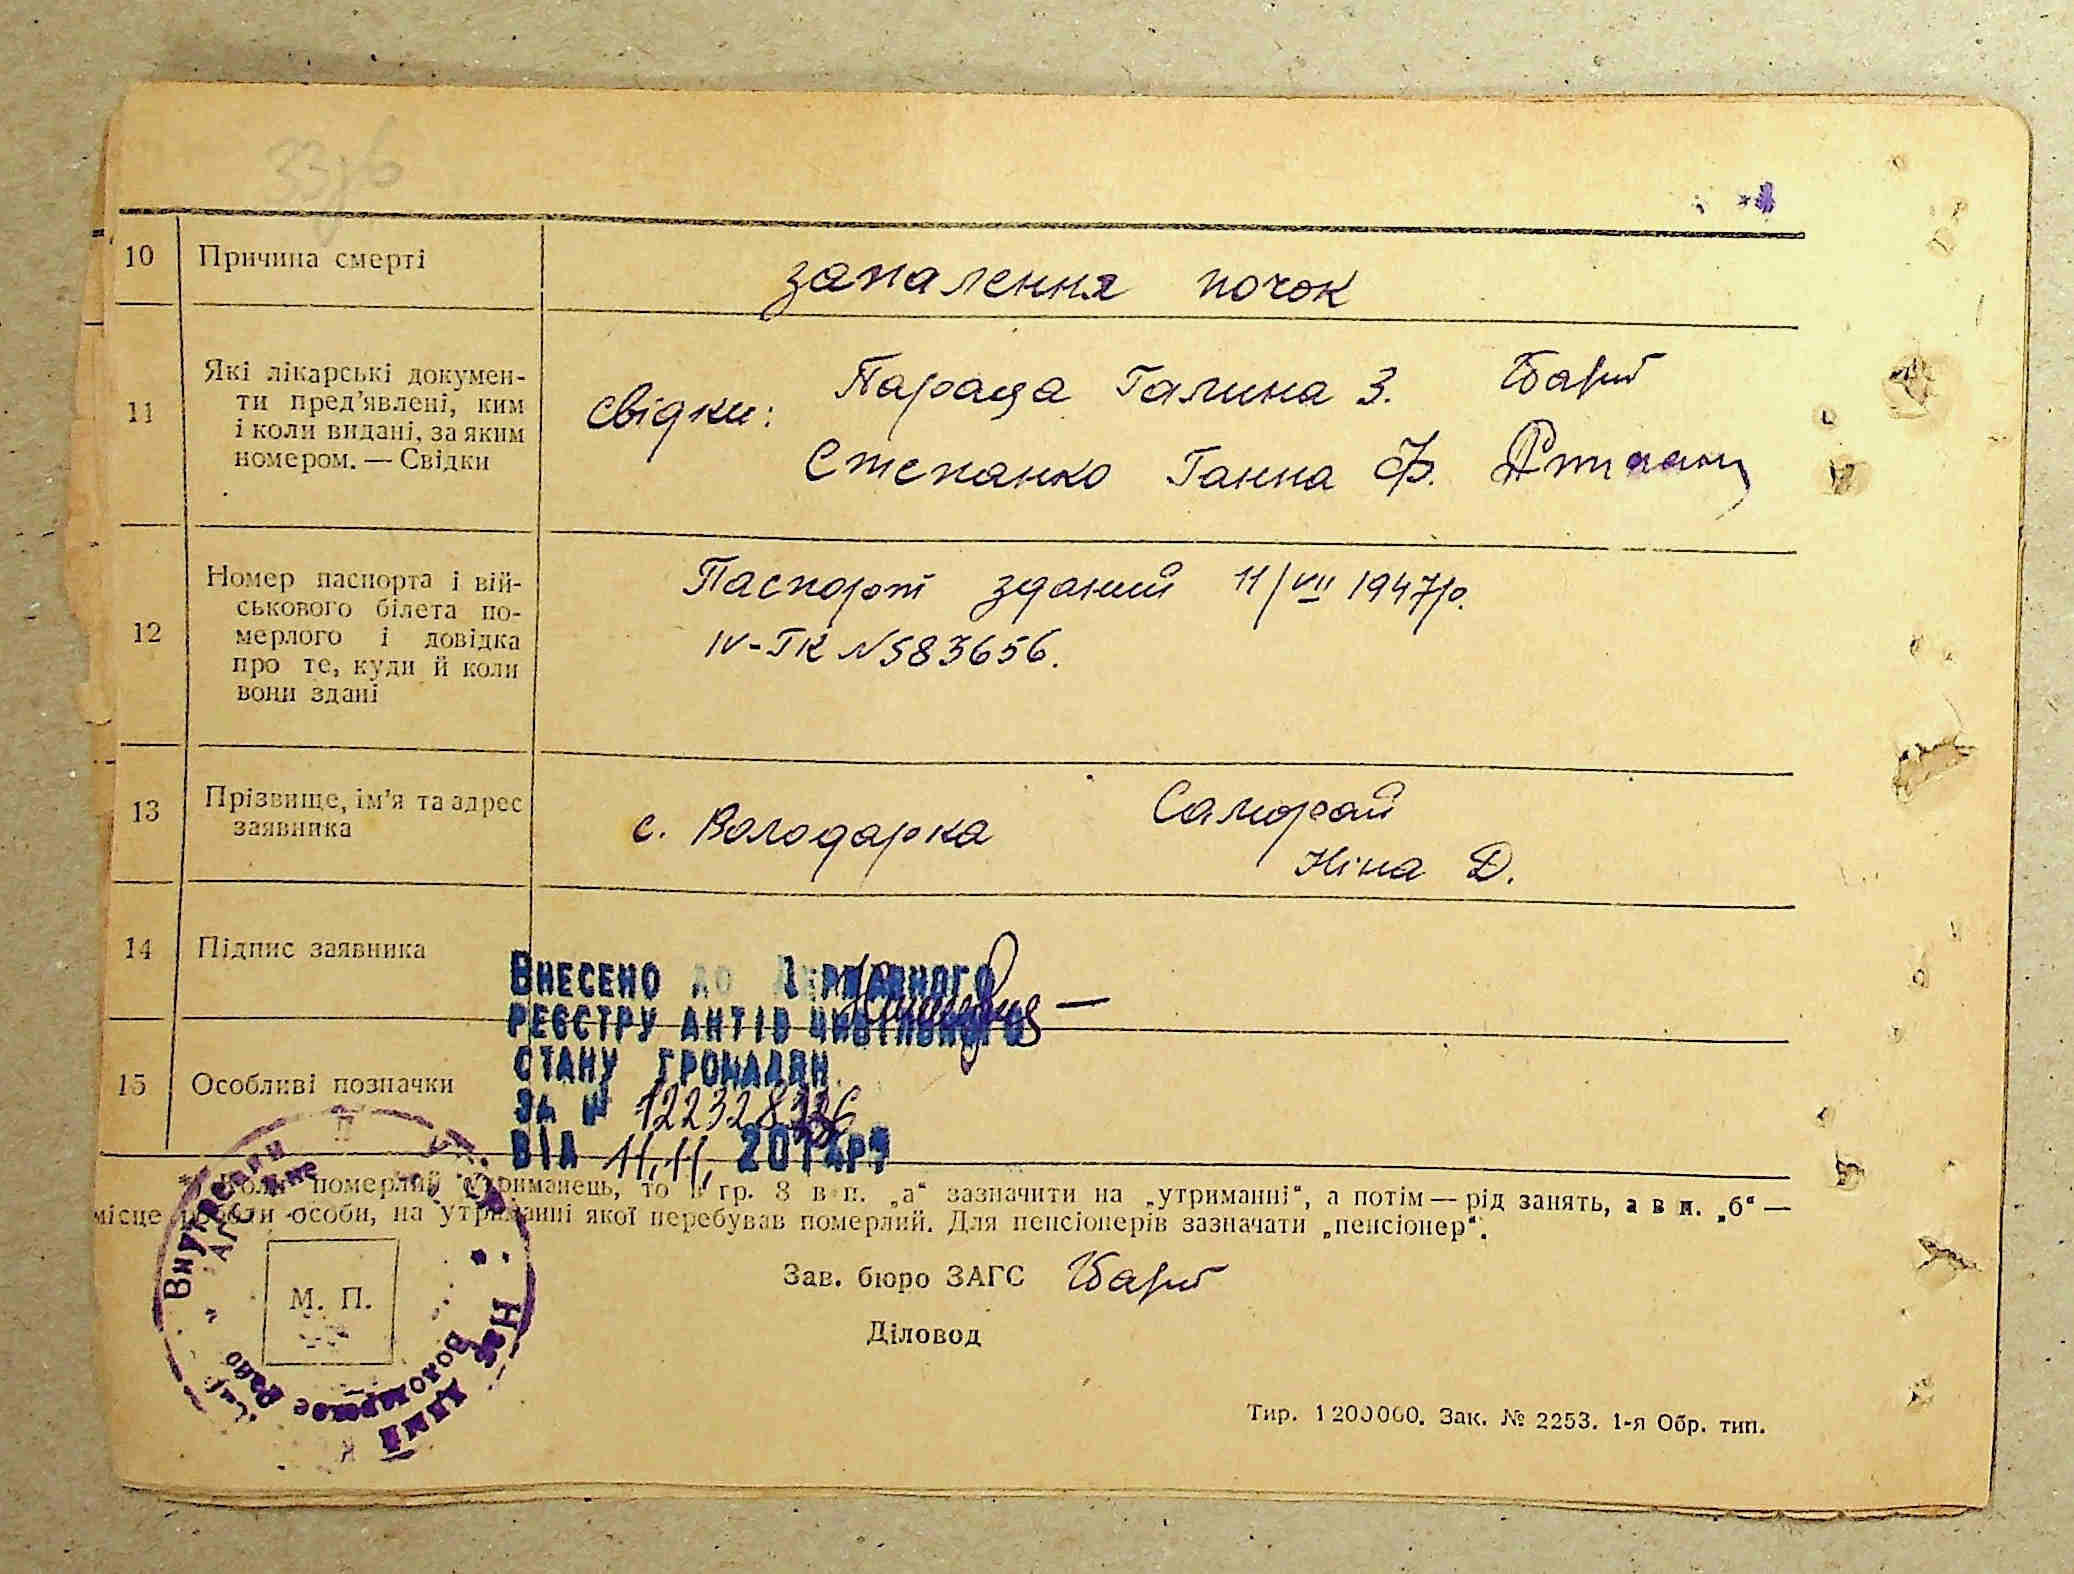 33зв
10 Причина смерті
запалення почок
11 Які лікарські докумен-
ти пред'явлені, ким
і коли видані, за яким
номером. — Свідки
свідки: Параца Галина З.
Степанко Ганна Ф.
12 Номер паспорта і вій-
ськового білета по-
мерлого і довідка
про те, куди й коли
вони здані
Паспорт зданий 11/VII 1947р.
IV-ГК №583656.
13 Прізвище, ім'я та адрес
заявника
с. Володарка Саморай
Ніна Д.
14 Підпис заявника
Внесено до Державного
реєстру актів цивільного
стану громадян
за №
від 11.11. 2014р
15 Особливі позначки
*) Коли померлий утриманець, то в гр. 8 в п. „а“ зазначити на „утриманні“, а потім — рід занять, а в п. „б“ —
місце роботи особи, на утриманні якої перебував померлий. Для пенсіонерів зазначати „пенсіонер“.
Зав. бюро ЗАГС
Діловод
М. П.
Внутрішні
Володарское
Тир. 1200000. Зак. № 2253. 1-я Обр. тип.